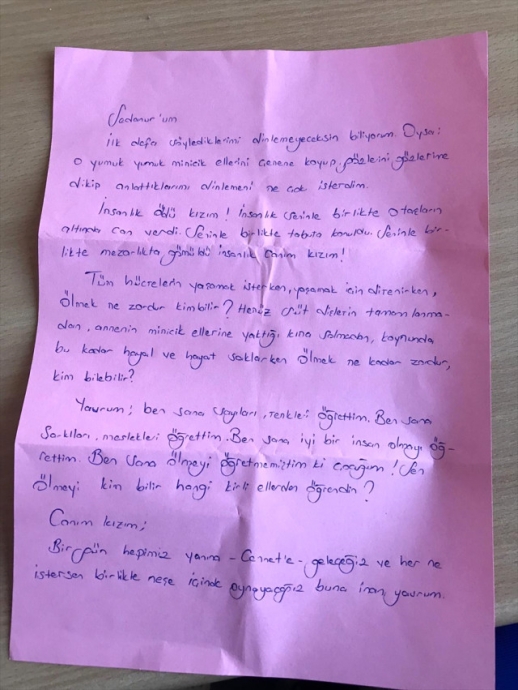 Sedanur'um
İlk defa söylediklerimi dinlemeyeceksin biliyorum. Oysa;
o yumuk yumuk minicik ellerini çenene koyup, gözlerini gözlerime
dikip anlattıklarımı dinlemeni ne çok isterdim.
İnsanlık öldü kızım! İnsanlık seninle birlikte o taşların
altında can verdi. Seninle birlikte tabuta konuldu. Seninle bir-
likte mezarlıkta gömüldü insanlık canım kızım!
Tüm hücrelerin yaşamak isterken, yaşamak için direnirken,
Ölmek ne zordur kimbilir? Henüz süt dişlerin tamamlanma-
dan, annenin minicik ellerine yaktığı kına solmadan, koynunda
bu kadar hayal ve hayat saklarken Ölmek ne kadar zordur,
kim bilebilir?
Yavrum; ben sana sayıları, renkleri öğrettim. Ben sana
şarkıları, meslekleri öğrettim. Ben sana iyi bir insan olmayı öğ-
rettim. Ben sana Ölmeyi öğretmemiştim ki çocuğum! Sen
Ölmeyi kim bilir hangi kirli ellerden öğrendin?
Canım kızım;
Bir gün hepimiz yanına - Cennet'e - geleceğiz ve her ne
istersen birlikte neşe içinde oynayacağız buna inan yavrum.